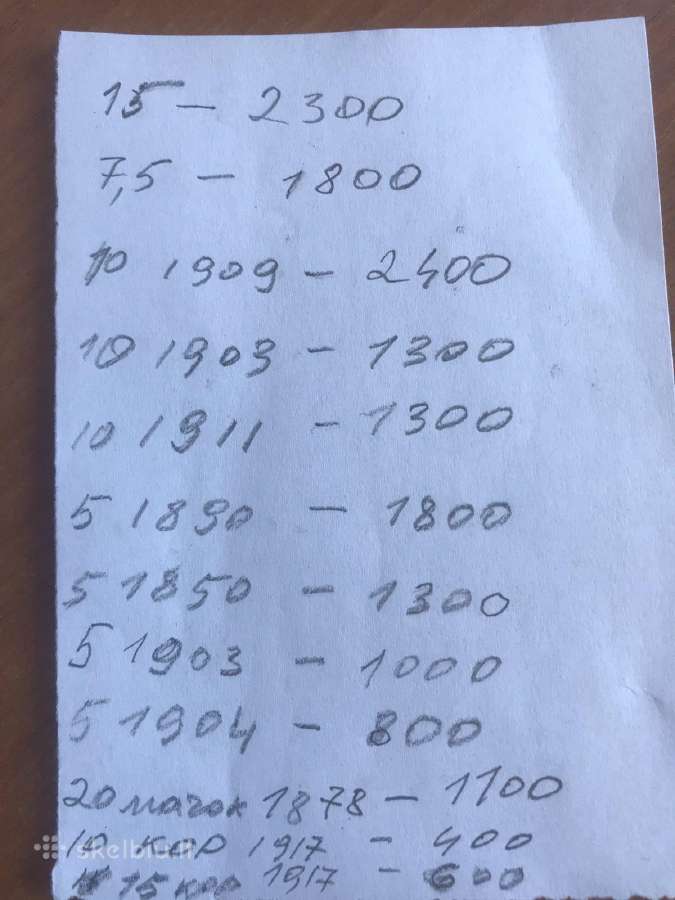 15 - 2300
7,5 - 1800
10 1909 - 2400
10 1903 - 1300
10 1911 - 1300
5 1890 - 1800
5 1850 - 1300
5 1903 - 1000
5 1904 - 800
20 марок 1878 - 1100
10 кор 1917 - 400
15 кор 1917 - 600
skelbiu.lt